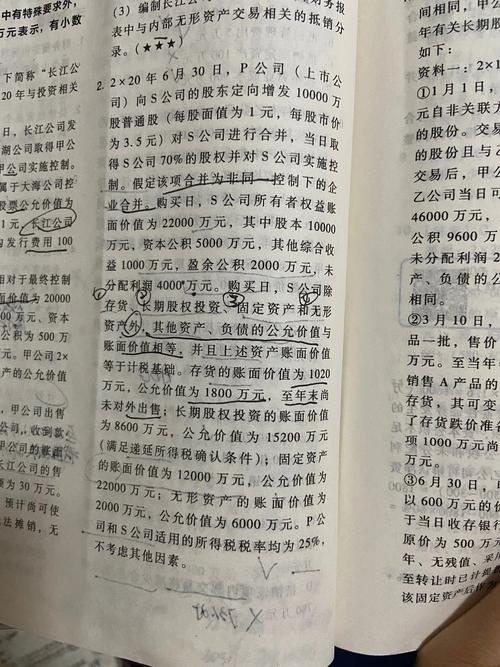 中有特殊要求外，
万元表示，有小数
下简称“长江公
20年与投资相关
日，长江公司发
湖公司取得甲公
公司实施控制。
属于大海公司控
股票公允价值为
1元，长江公司
内发行费用100
相对于最终控制
面价值为20000
万元、资本
公积为500万
元。甲公司2×
产的公允价值
，甲公司出售
，收到款
长江公司的售
额为30万元。
预计尚可使
法摊销，无
（3）编制长江公
表中与内部无形资产交易相关的抵销分
录。（★★★）
2. 2×20年6月30日，P公司（上市公
司）向S公司的股东定向增发10000万
股普通股（每股面值为1元，每股市价
为3.5元）对S公司进行合并，当日取
得S公司70%的股权并对S公司实施控
制。假定该项合并为非同一控制下的企
业合并。购买日，S公司所有者权益账
面价值为22000万元，其中股本10000
万元，资本公积5000万元，其他综合收
益1000万元，盈余公积2000万元，未
分配利润4000万元。购买日，S公司除
存货、长期股权投资、固定资产和无形
资产外，其他资产、负债的公允价值与
账面价值相等，并且上述资产账面价值
等于计税基础。存货的账面价值为1020
万元，公允价值为1800万元，至年末尚
未对外出售；长期股权投资的账面价值
为8600万元，公允价值为15200万元
（满足递延所得税确认条件）；固定资产
的账面价值为12000万元，公允价值为
22000万元；无形资产的账面价值为
2000万元，公允价值为6000万元。P公
司和S公司适用的所得税税率均为25%，
不考虑其他因素。
间相同，甲公
年有关长期股
如下：
资料一：2×1
①1月1日，
元自非关联方
的股份。交易
的股份且与乙
交易后，甲公
乙公司当日可
46000万元，
公积9600万
未分配利润2
产、负债的公
相同。
②3月10日，
品一批，售价
万元。至当年
销售A产品的
了存货跌价准备
项1000万元尚
万元。
③6月30日，
以600万元的价
于当日收存银行
原价为500万元
年、无残值、采
至转让时已计提
该固定资产后作